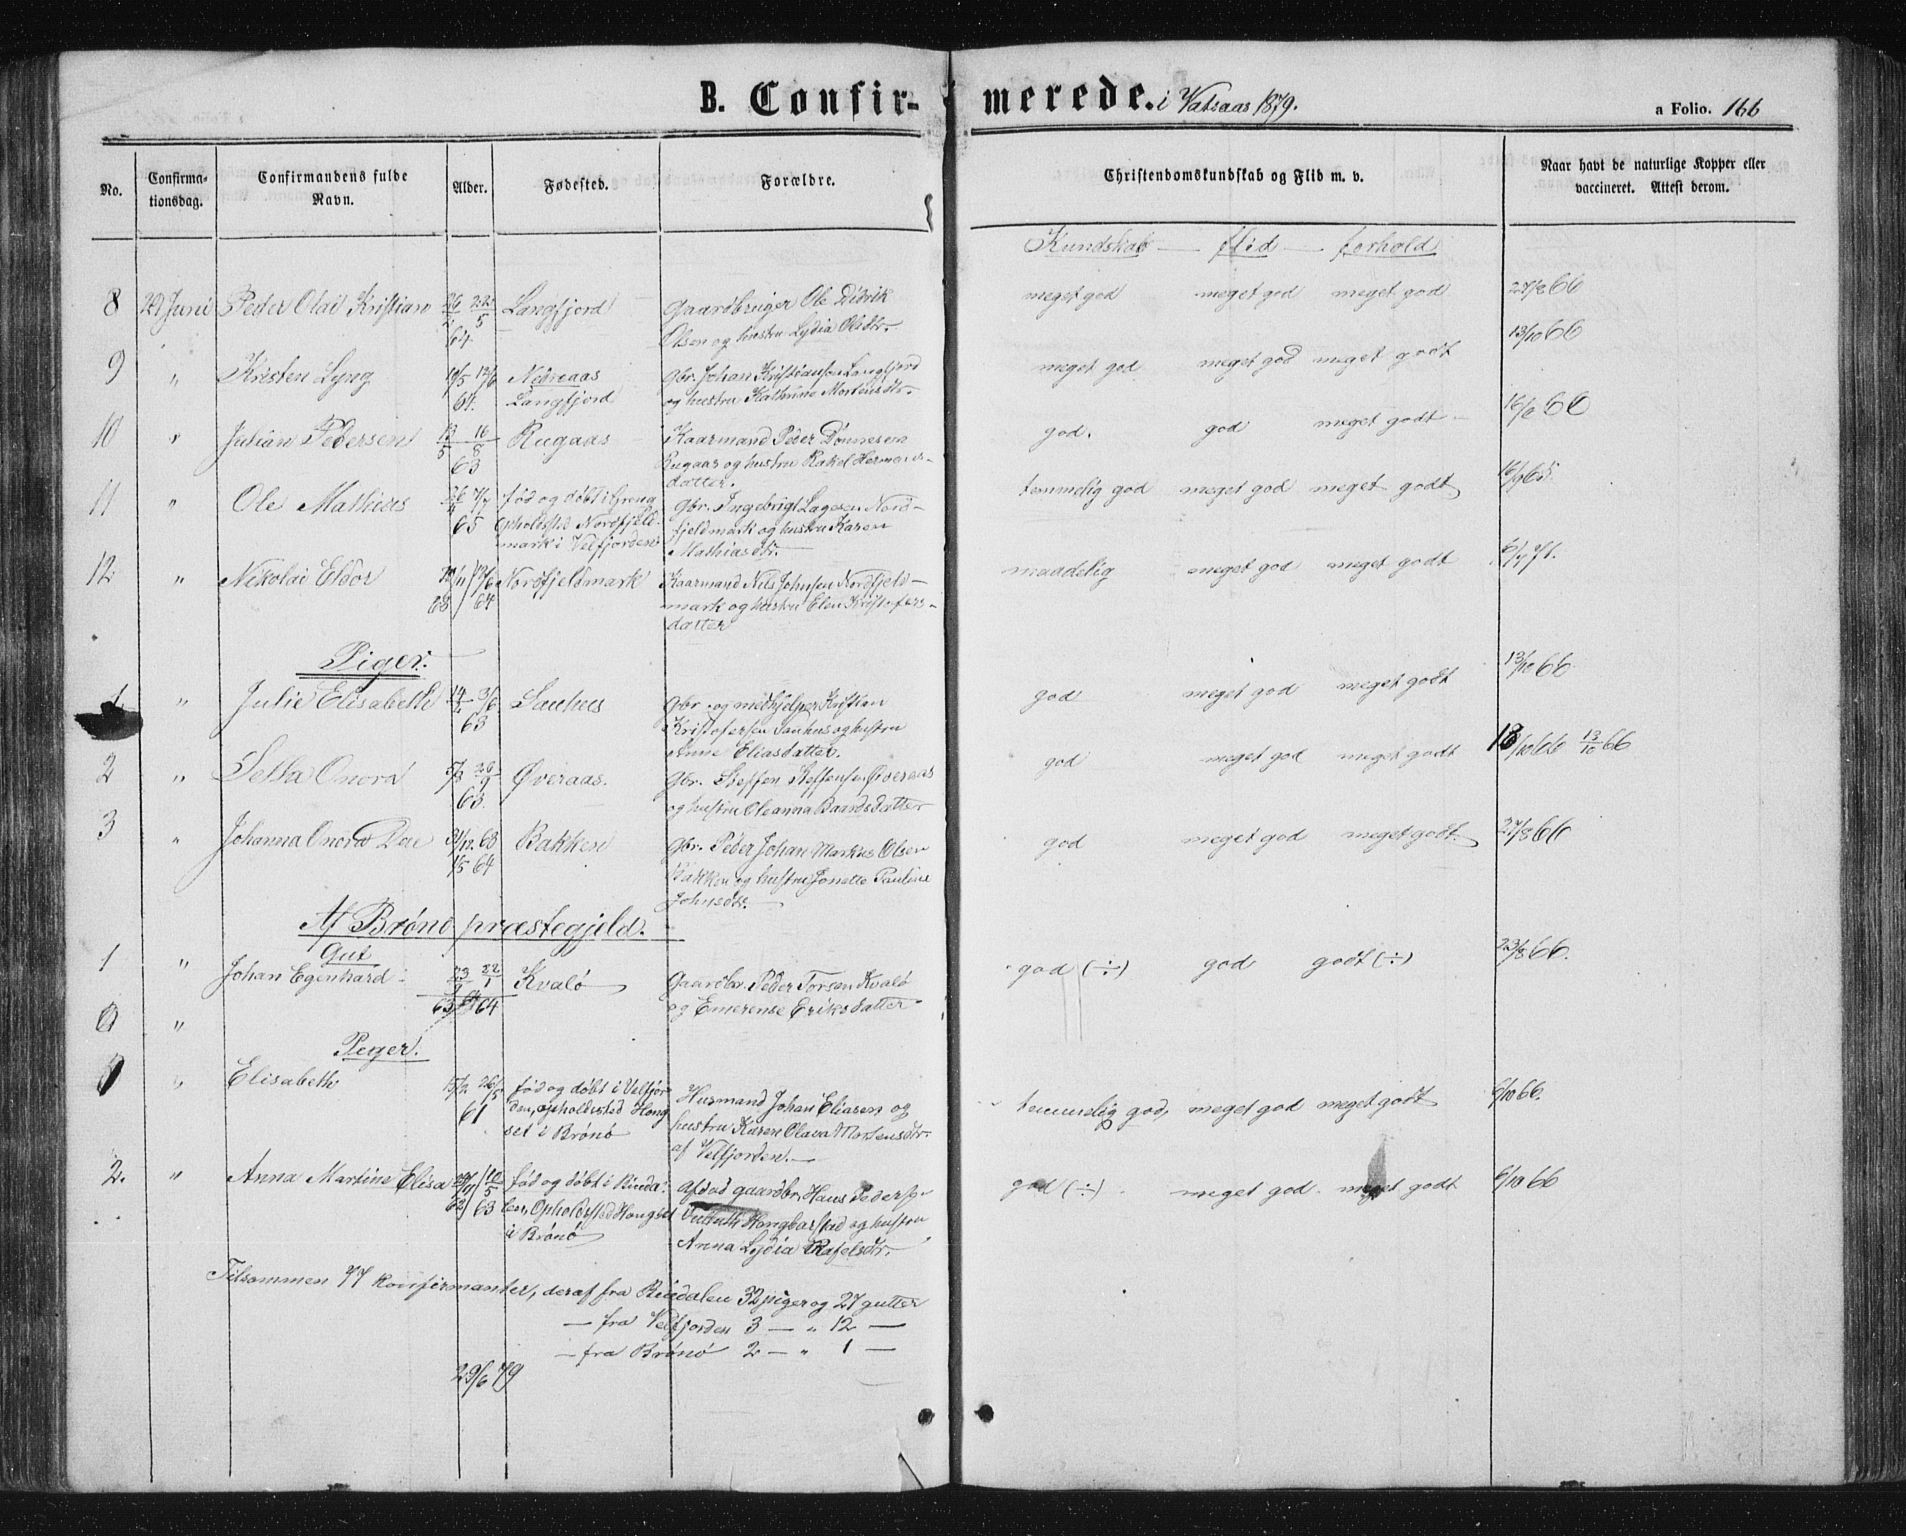 B. Confirmerede. i Vatsaas 1879.
a Folio. 166
No.
Confirmationsdag.
Confirmandens fulde Navn.
Alder.
Fødested.
Forældre.
Christendomskundskab og Flid m. v.
Naar havt de naturlige Kopper eller vaccineret. Attest derom.
Kundskab — flid — forhold
8 29 Juni Peder Olai Kristian Langfjord Gaardbruger Ole Didrik meget god meget god meget god 27/8 66
64 Olsen og hustru Lydia Olsdtr.
9 " Kristen Lyng Nedreaas Gbr. Johan Kristiansen Langfjord meget god meget god meget godt 13/10 66
64. Langfjord og hustru Kathrine Mortensdtr.
10 " Julian Pedersen 13/5 16/8 Rugaas Kaarmand Peder Dønnesen god. god meget godt
63 Rugaas og hustru Rakel Hermans-
datter.
11 " Ole Mathias født og døbt i Grong Gbr. Ingebrigt Lagesen Nord- temmelig god meget god meget godt 16/9 65
65 opholdsted Nordfjeld- fjeldmark og hustru Karen
mark i Velfjorden Mathiasdtr.
12 " Nikolai Eldor Nordfjeldmark Kaarmand Nils Johnsen Nordfjeld- maadelig meget god meget godt
64 mark og hustru Elen Kristofers-
datter
Piger.
1 " Julie Elisabeth 3/6 Sauhus Gbr. og medhjelper Kristian god meget god meget godt 13/10 66
63 Kristofersen Sauhus og hustru
Anne Eliasdatter.
2 " Setha Onora Øveraas. Gbr. Steffen Steffensen Øveraas god meget god meget godt 13/10 66 13/10 66
63. og hustru Oleanna Baardsdatter
3 " Johanna Onora Dae 31/12 63 Bakken Gbr. Peder Johan Markus Olsen god meget god meget godt. 27/8 66
1/5 64 Bakken og hustru Jonette Pauline
Johnsdtr.
Af Brønø præstegjeld.
Gut
1 " Johan Egenhard 23/9 22/1 Kvalø Gaardbr. Peder Torsen Kvalø god (÷) god godt (÷) 23/8 66.
63 64 og Emerense Eriksdatter
"
Piger.
1 " Elisabeth 15/2 26/5 født og døbt i Velfjor- Husmand Johan Eliasen og temmelig god, meget god meget godt 6/10 66.
61 den, opholdsted Hong- hustru Karen Olava Mortensdtr.
set i Brønø af Velfjorden.
2. " Anna Martine Elisa 10/5 født og døbt i Binda- Afdød gaardbr. Hans Peders. god (÷) meget god meget godt 6/10 66
62 63 len, Opholdsted Hongset og hustru
i Brønø Anna Lydia Rafelsdtr.
Tilsammen 77 konfirmanter, deraf fra Bindalen 32 piger og 27 gutter
— fra Velfjorden 3 — " 12 —
— fra Brønø 2 — " 1 —
29/6 79